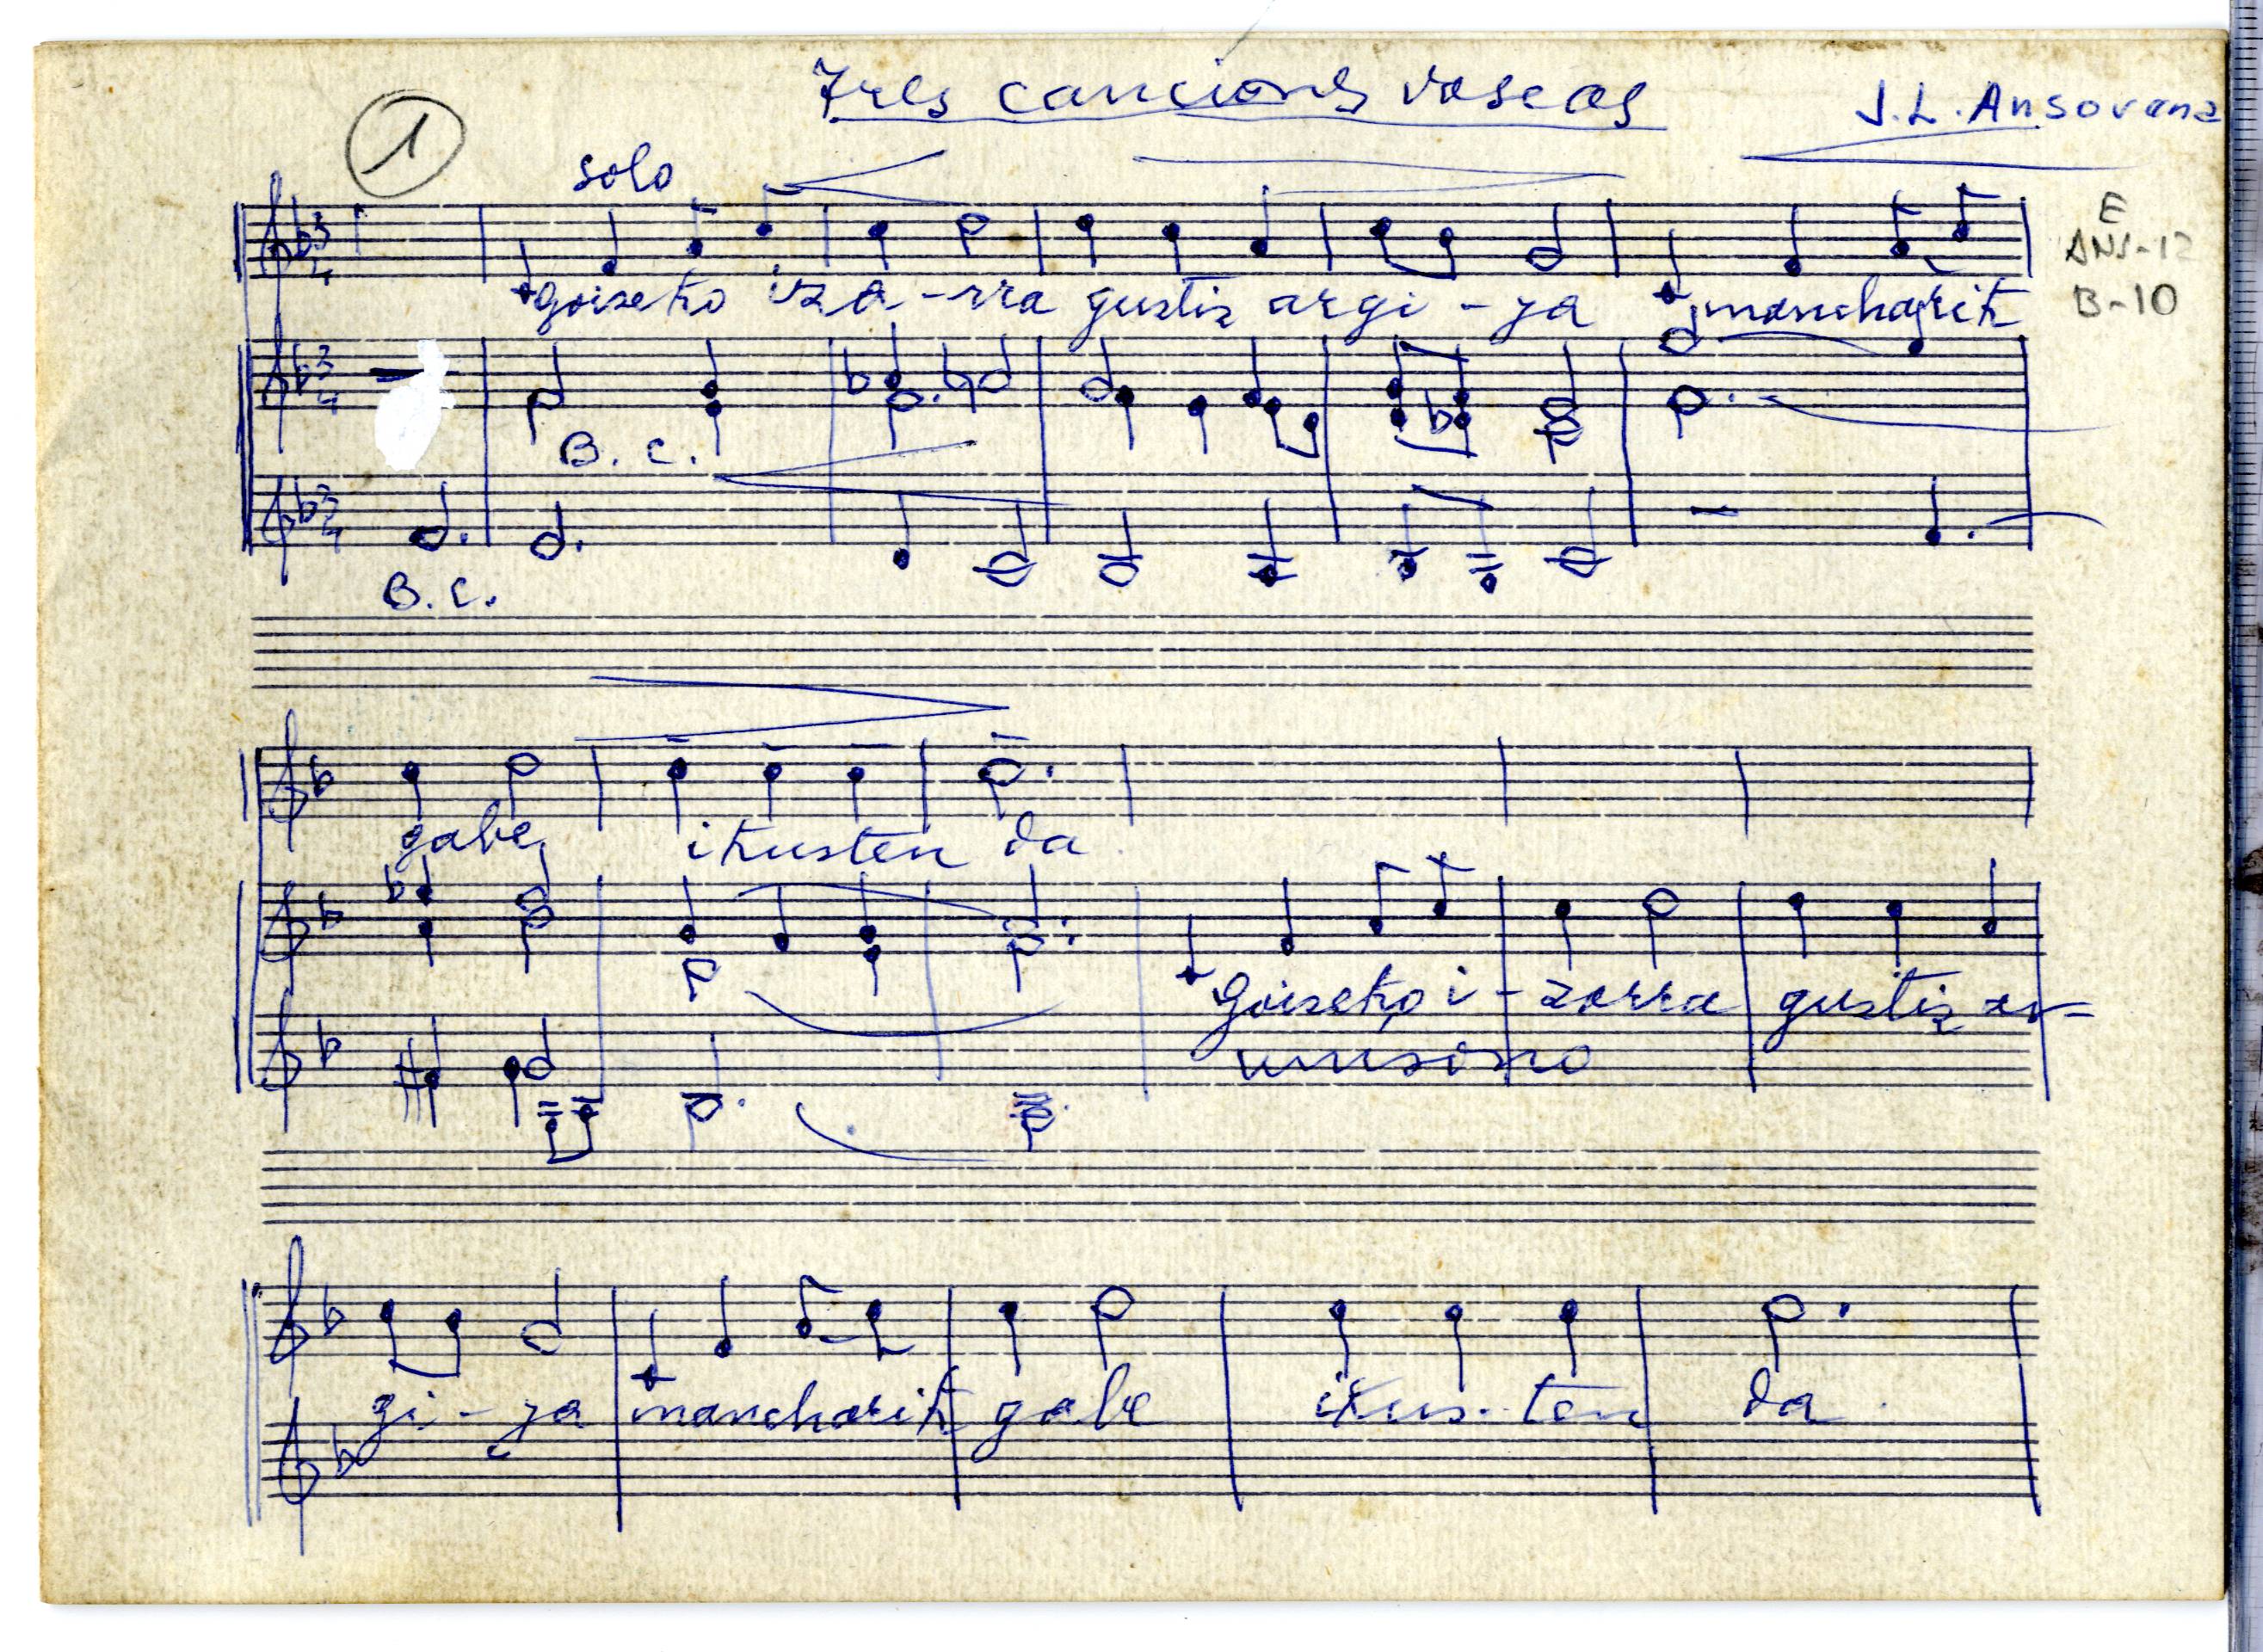 Tres canciones vascas
J.L. Ansorena
1
solo
E
ANS-12
B-10
goizeko iza-rra guztiz argi-ya mancharik
B.C.
B.C.
gabe ikusten da
Goizeko i-zarra guztiz ar-
unisono
gi-ya mancharik gabe ikus-ten da.